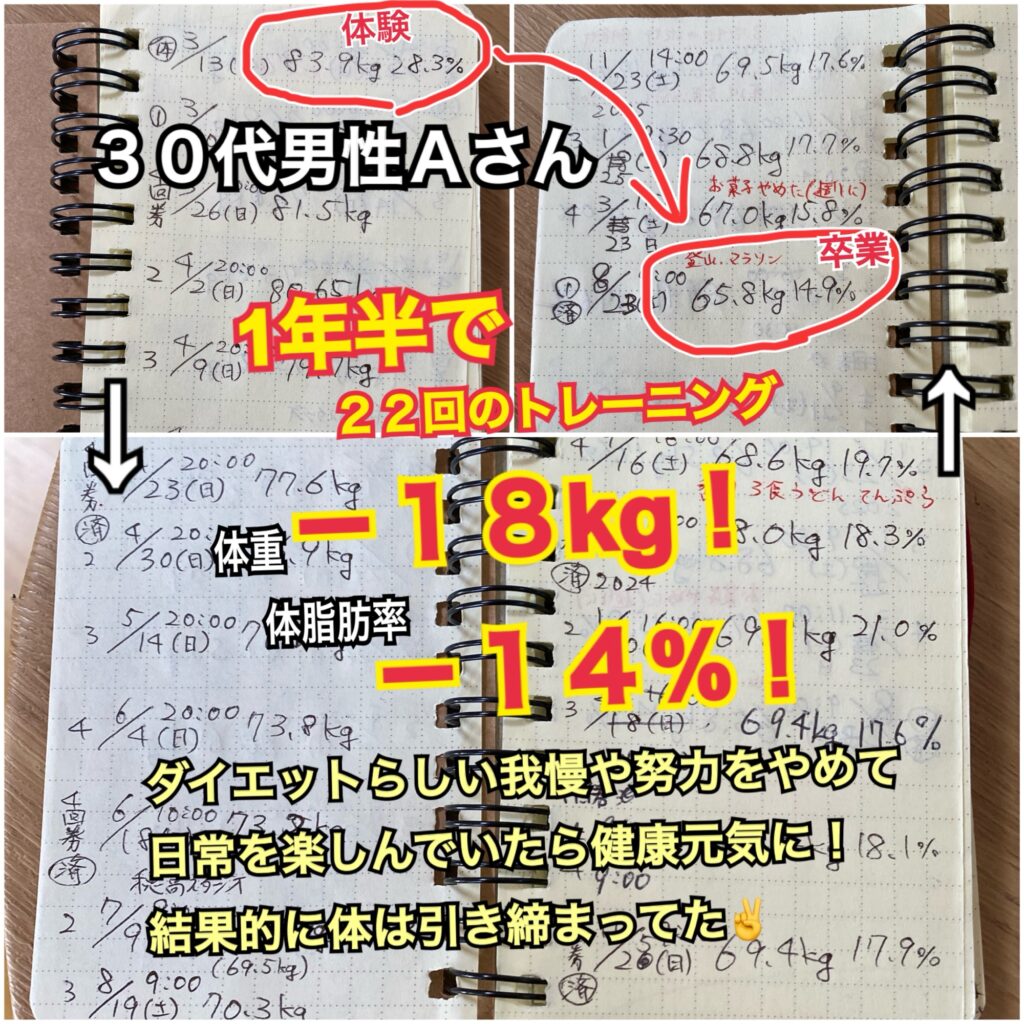 体験
㊡ 3/13( ) 83.9kg 28.3%
① 3/
30代男性Aさん
4回券 3/26(日) 81.5kg
2 4/2(日) 20:00 80.65k
3 4/9(日) 20: 79. kg
11/23(土) 14:00 69.5kg 17.6%
2025
3 1/ :30 68.8kg 17.7%
お菓子やめた
4 3/23 (土) 日 67.0kg 15.8%
登山、マラソン
卒業
① 8/23(土) :00 65.8kg 14.9%
済
1年半で
22回のトレーニング
/23(日) 20:00 77.6kg
済
2 4/30(日) 20: .9kg
3 5/14(日) 20:00 7
4 6/4(日) 20:00 73.8kg
4回券 6/18 10:00 73. kg
済
穂高スタジオ
2 7/9
(69.5kg)
3 8/19(土) 9:00 70.3kg
4 /16(土) 68.6kg 19.7%
3食うどん てんぷら
8.0kg 18.3%
済 2024
2 1/ 69. kg 21.0%
3 /18(日) 69.4kg 17.6%
18.1%
9:00
券 /26(日) 69.4kg 17.9%
済
体重
ー18kg！
体脂肪率
ー14%！
ダイエットらしい我慢や努力をやめて
日常を楽しんでいたら健康元気に！
結果的に体は引き締まってた✌️